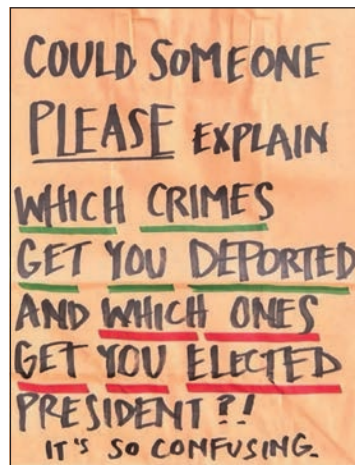 COULD SOMEONE
PLEASE EXPLAIN
WHICH CRIMES
GET YOU DEPORTED
AND WHICH ONES
GET YOU ELECTED
PRESIDENT?!
IT'S SO CONFUSING.